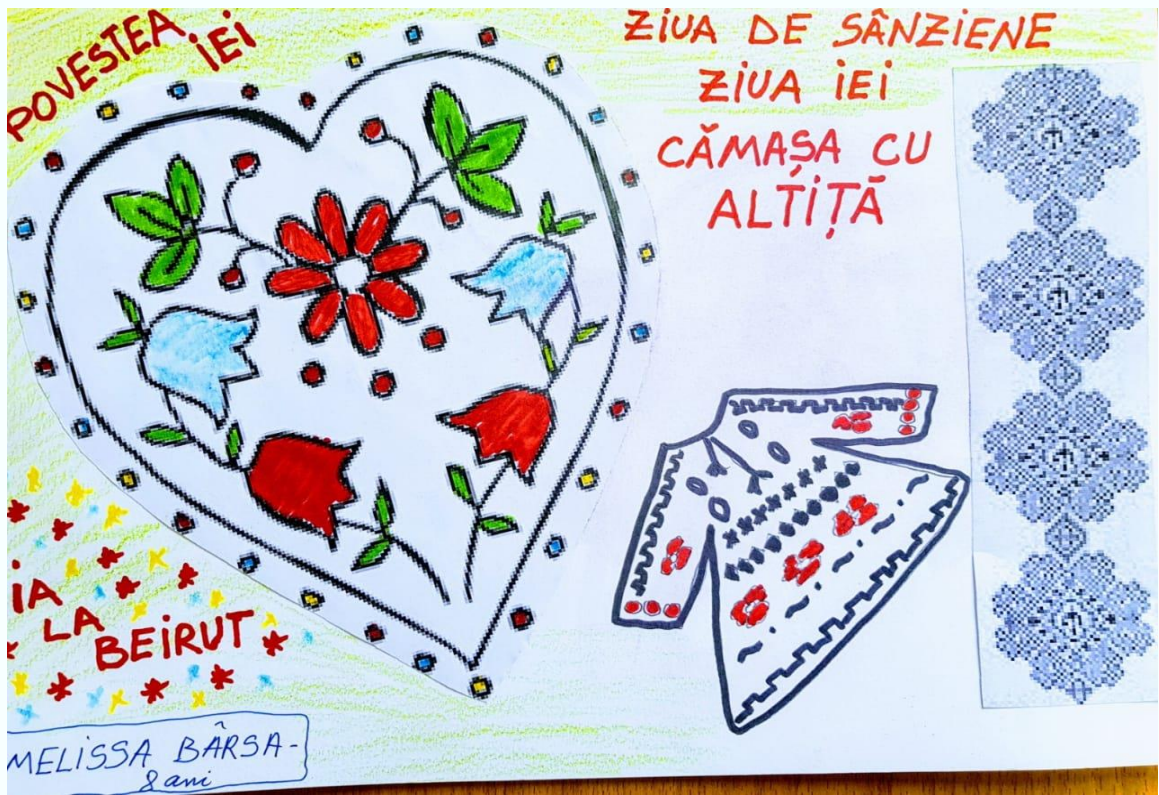 POVESTEA
IEI
ZIUA DE SÂNZIENE
ZIUA IEI
CĂMAȘA CU
ALTIȚĂ
IA
LA
BEIRUT
MELISSA BÂRSA-
8 ani